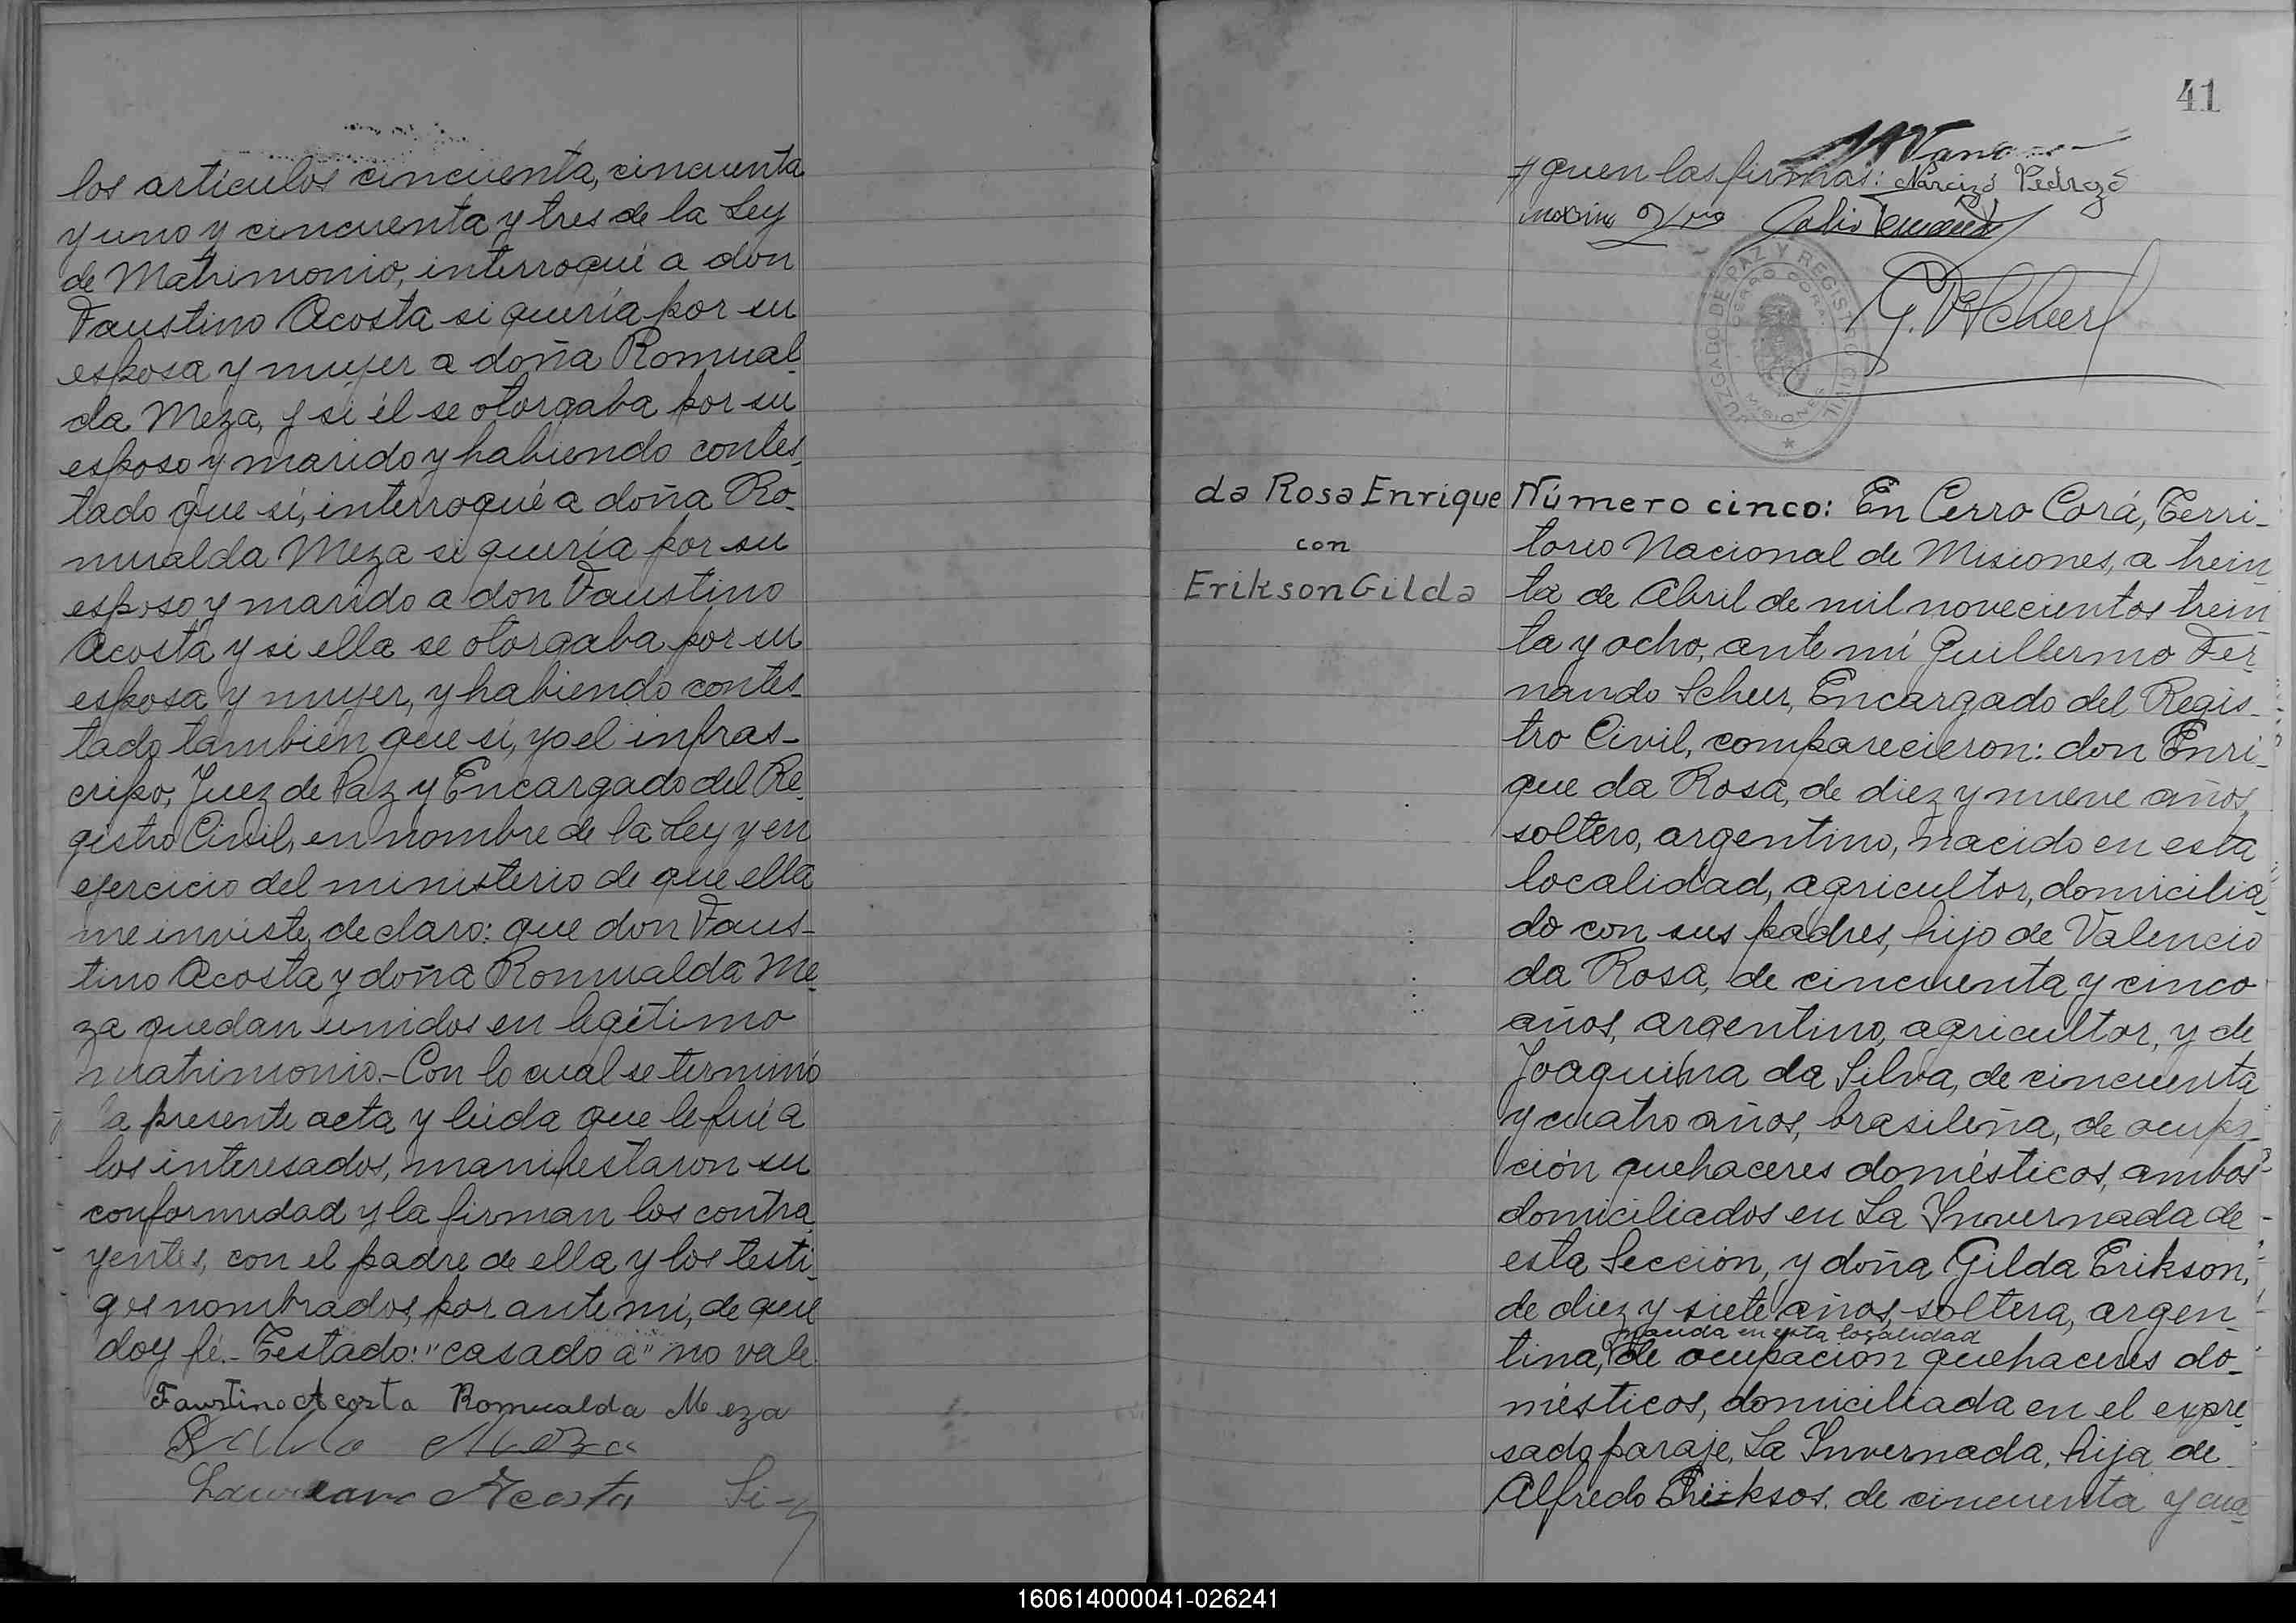 los artículos cincuenta, cincuenta
y uno y cincuenta y tres de la Ley
de Matrimonio, interroqué a don
Faustino Acosta si quería por su
esposa y mujer a doña Romual-
da Meza, y si él se otorgaba por su
esposo y marido y habiendo contes-
tado que sí, interroqué a doña Ro-
mualda Meza si quería por su
esposo y marido a don Faustino
Acosta y si ella se otorgaba por su
esposa y mujer, y habiendo contes-
tado también que sí, yo el infras-
cripto, Juez de Paz y Encargado del Re-
gistro Civil, en nombre de la Ley y en
ejercicio del ministerio de que ella
me inviste, declaro: que don Faus-
tino Acosta y doña Romualda Me-
za quedan unidos en legítimo
matrimonio.- Con lo cual se terminó
la presente acta y leída que le fué a
los interesados, manifestaron su
conformidad y la firman los contra-
yentes, con el padre de ella y los testi-
gos nombrados, por ante mí, de que
doy fé.- Testado: "casado a" no vale.
Faustino Acosta Romualda Meza
Meza
Acosta Si-
41
guen las firmas: Narcizo Pedrozo
G. F. Scheer
JUZGADO DE PAZ Y REGISTRO CIVIL
CERRO CORA
MISIONES
da Rosa Enrique
con
Erikson Gilda
Número cinco: En Cerro Corá, Terri-
torio Nacional de Misiones, a trein-
ta de Abril de mil novecientos trein-
ta y ocho, ante mí Guillermo Fer-
nando Scheer, Encargado del Regis-
tro Civil, comparecieron: don Enri-
que da Rosa, de diez y nueve años,
soltero, argentino, nacido en esta
localidad, agricultor, domicilia-
do con sus padres, hijo de Valencio
da Rosa, de cincuenta y cinco
años, argentino, agricultor, y de
Joaquina da Silva, de cincuenta
y cuatro años, brasileña, de ocupa-
ción quehaceres domésticos, ambos
domiciliados en La Invernada de
esta Sección, y doña Gilda Erikson,
de diez y siete años, soltera, argen-
nacida en esta localidad
tina, de ocupación quehaceres do-
mésticos, domiciliada en el expre-
sado paraje, La Invernada, hija de
Alfredo Eriksos, de cincuenta y cua-
160614000041-026241